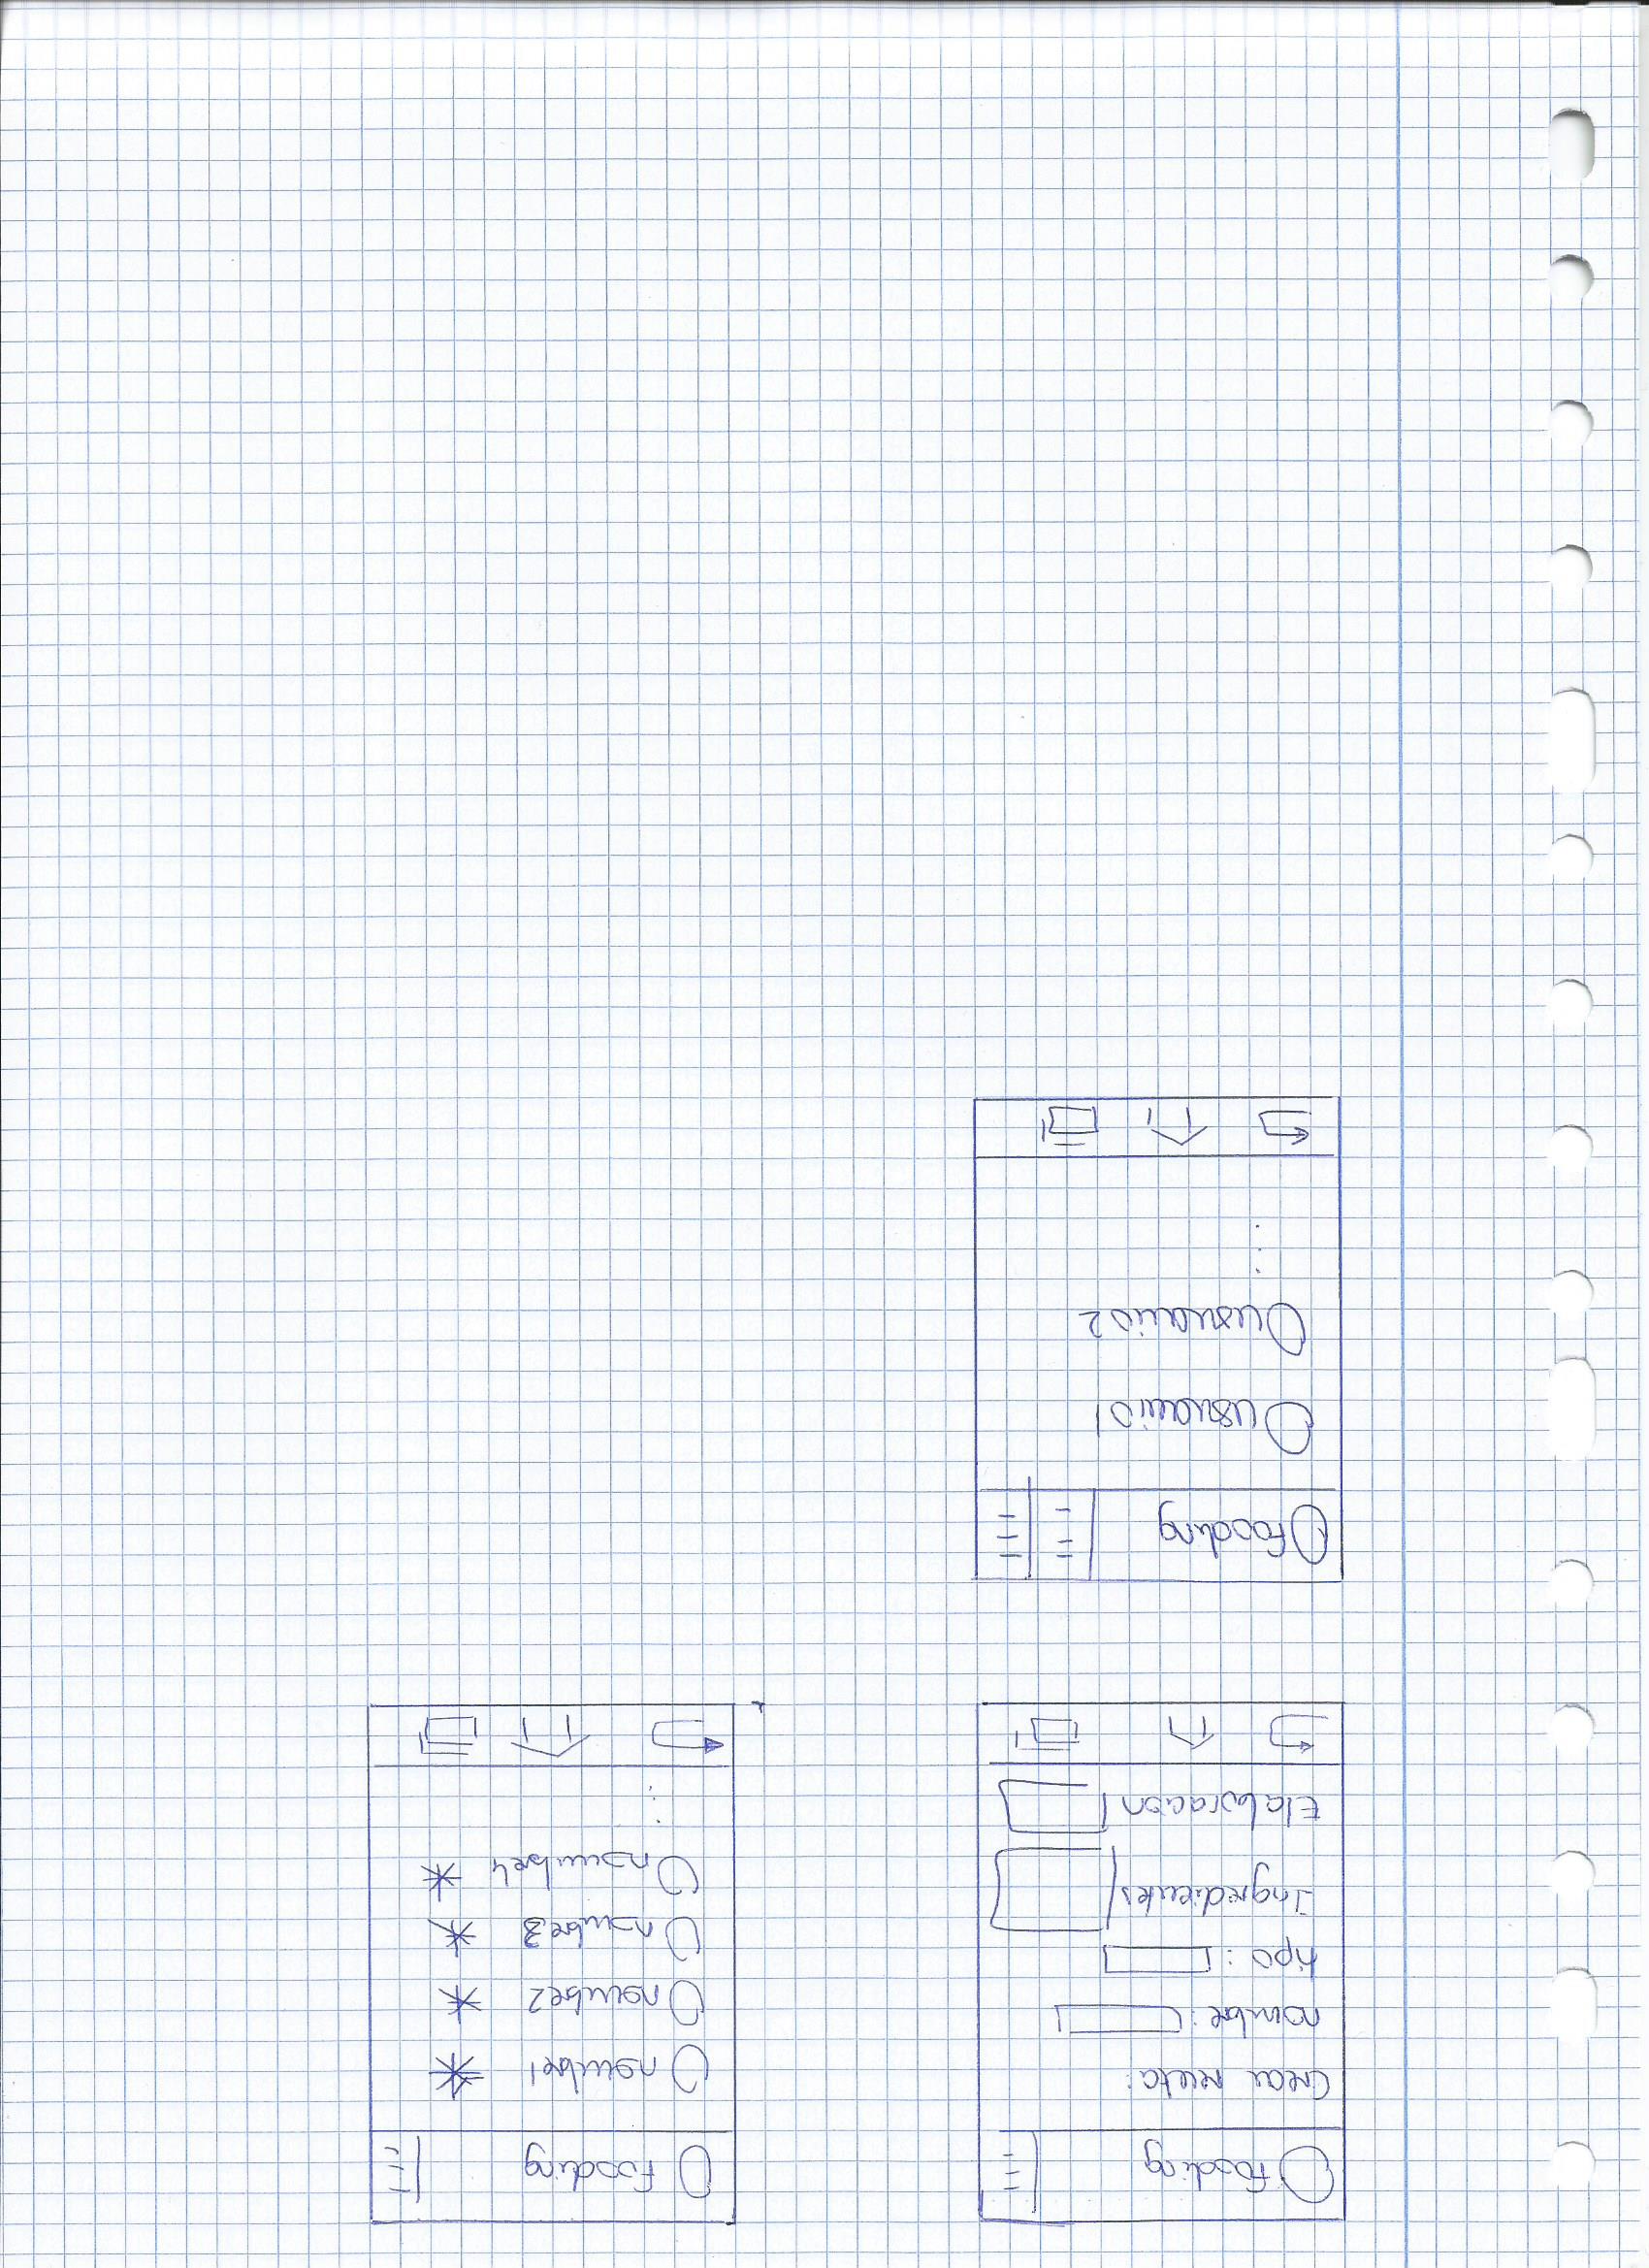 Fooding
Crear receta:
nombre:
tipo:
Ingredientes
Elaboracion
Fooding
nombre1
nombre2
nombre3
nombre4
Fooding
usuario1
usuario2